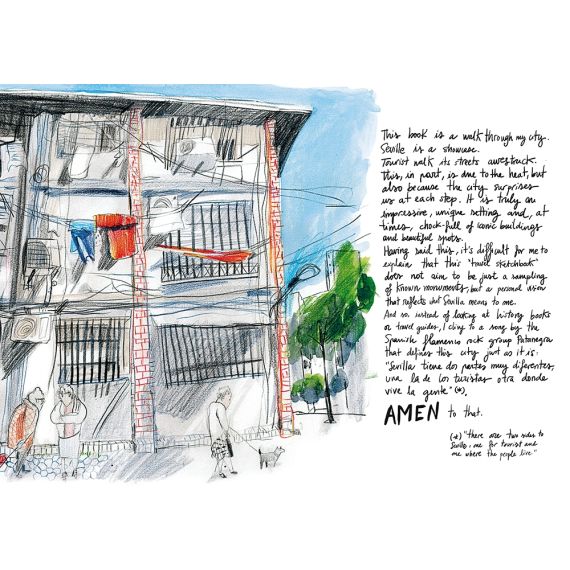 This book is a walk through my city.
Seville is a showcase.
Tourist walk its streets awestruck.
This, in part, is due to the heat, but
also because the city surprises
us at each step. It is truly an
impressive, unique setting and, at
times, chock-full of iconic buildings
and beautiful spots.
Having said this, it's difficult for me to
explain that this "travel sketchbook"
does not aim to be just a sampling
of known monuments, but a personal vision
that reflects what Sevilla means to me.
And so, instead of looking at history books
or travel guides, I cling to a song by the
Spanish flamenco rock group Patanegra
that defines this city just as it is:
"Sevilla tiene dos partes muy diferentes,
una la de los turistas otra donde
vive la gente" (*).
AMEN to that.
(*) "there are two sides to
Seville, one for tourist and
one where the people live"